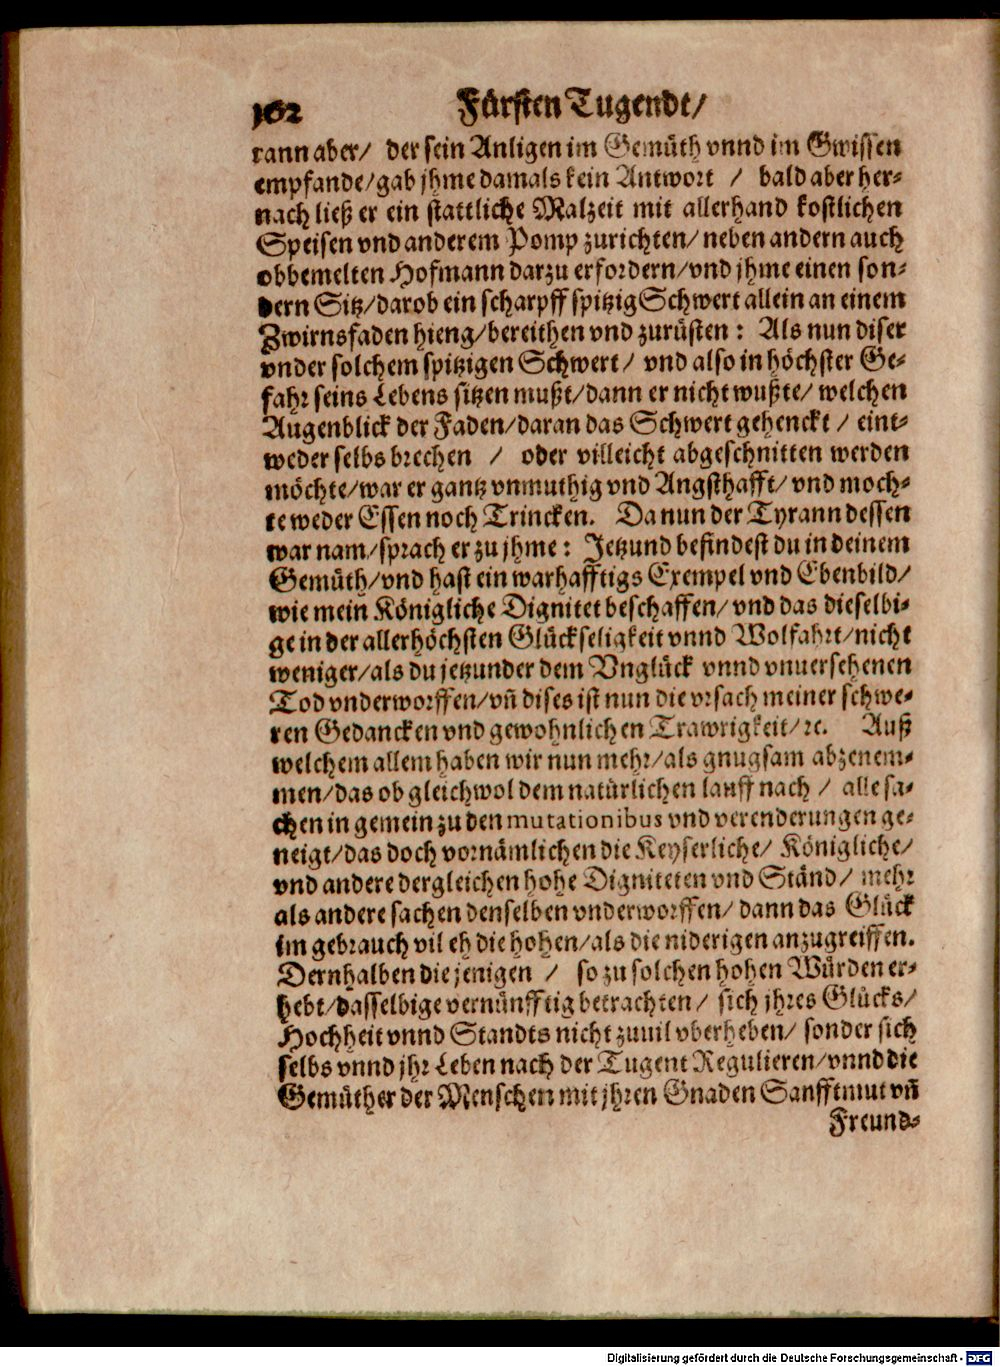 162 Fürsten Tugendt/
rann aber/ der sein Anligen im Gemüth vnnd im Gwissen
empfande/gab jhme damals kein Antwort / bald aber her-
nach ließ er ein stattliche Malzeit mit allerhand kostlichen
Speisen vnd anderem Pomp zurichten/ neben andern auch
obbemelten Hofmann darzu erfordern/vnd jhme einen son-
dern Sitz/darob ein scharpff spitzig Schwert allein an einem
Zwirnsfaden hieng/bereithen vnd zurüsten: Als nun diser
vnder solchem spitzigen Schwert/ vnd also in höchster Ge-
fahr seins Lebens sitzen mußt/dann er nicht wußte/ welchen
Augenblick der Faden/daran das Schwert gehenckt / eint-
weder selbs brechen / oder villeicht abgeschnitten werden
möchte/war er gantz vnmuthig vnd Angsthafft/ vnd moch-
te weder Essen noch Trincken. Da nun der Tyrann dessen
war nam/sprach er zu jhme: Jetzund befindest du in deinem
Gemüth/vnd hast ein warhafftigs Exempel vnd Ebenbild/
wie mein Königliche Dignitet beschaffen/ vnd das dieselbi-
ge in der allerhöchsten Glückseligkeit vnnd Wolfahrt/nicht
weniger/als du jetzunder dem Vnglück vnnd vnuersehenen
Tod vnderworffen/vñ dises ist nun die vrsach meiner schwe-
ren Gedancken vnd gewohnlichen Trawrigkeit/ꝛc. Auß
welchem allem haben wir nun mehr/als gnugsam abzenem-
men/das ob gleichwol dem natürlichen lauff nach / alle sa-
chen in gemein zu den mutationibus vnd verenderungen ge-
neigt/das doch vornämlichen die Keyserliche/ Königliche/
vnd andere dergleichen hohe Digniteten vnd Ständ/ mehr
als andere sachen denselben vnderworffen/ dann das Glück
im gebrauch vil eh die hohen/als die niderigen anzugreiffen.
Dernhalben die jenigen / so zu solchen hohen Würden er-
hebt/dasselbige vernünfftig betrachten/ sich jhres Glücks/
Hochheit vnnd Standts nicht zuuil vberheben/ sonder sich
selbs vnnd jhr Leben nach der Tugent Regulieren/vnnd die
Gemüther der Menschen mit jhren Gnaden Sanfftmut vñ
Freund-
Digitalisierung gefördert durch die Deutsche Forschungsgemeinschaft - DFG